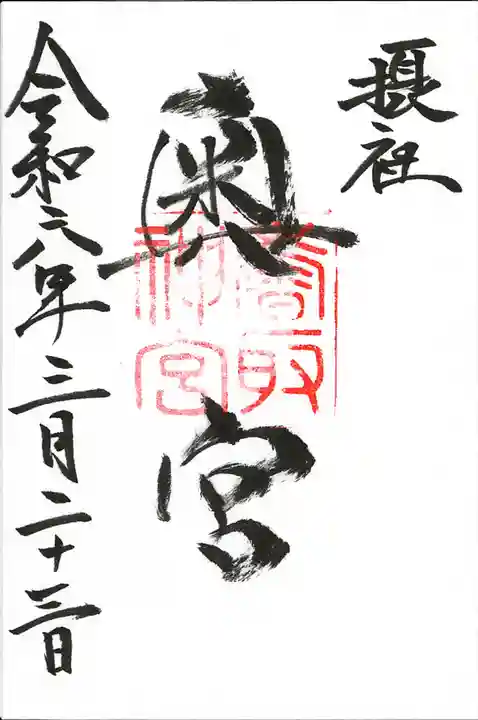 摂社
奥宮
香取神宮
令和六年三月二十三日